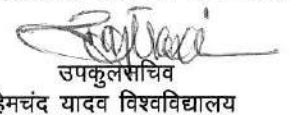 उपकुलसचिव
हेमचंद यादव विश्वविद्यालय